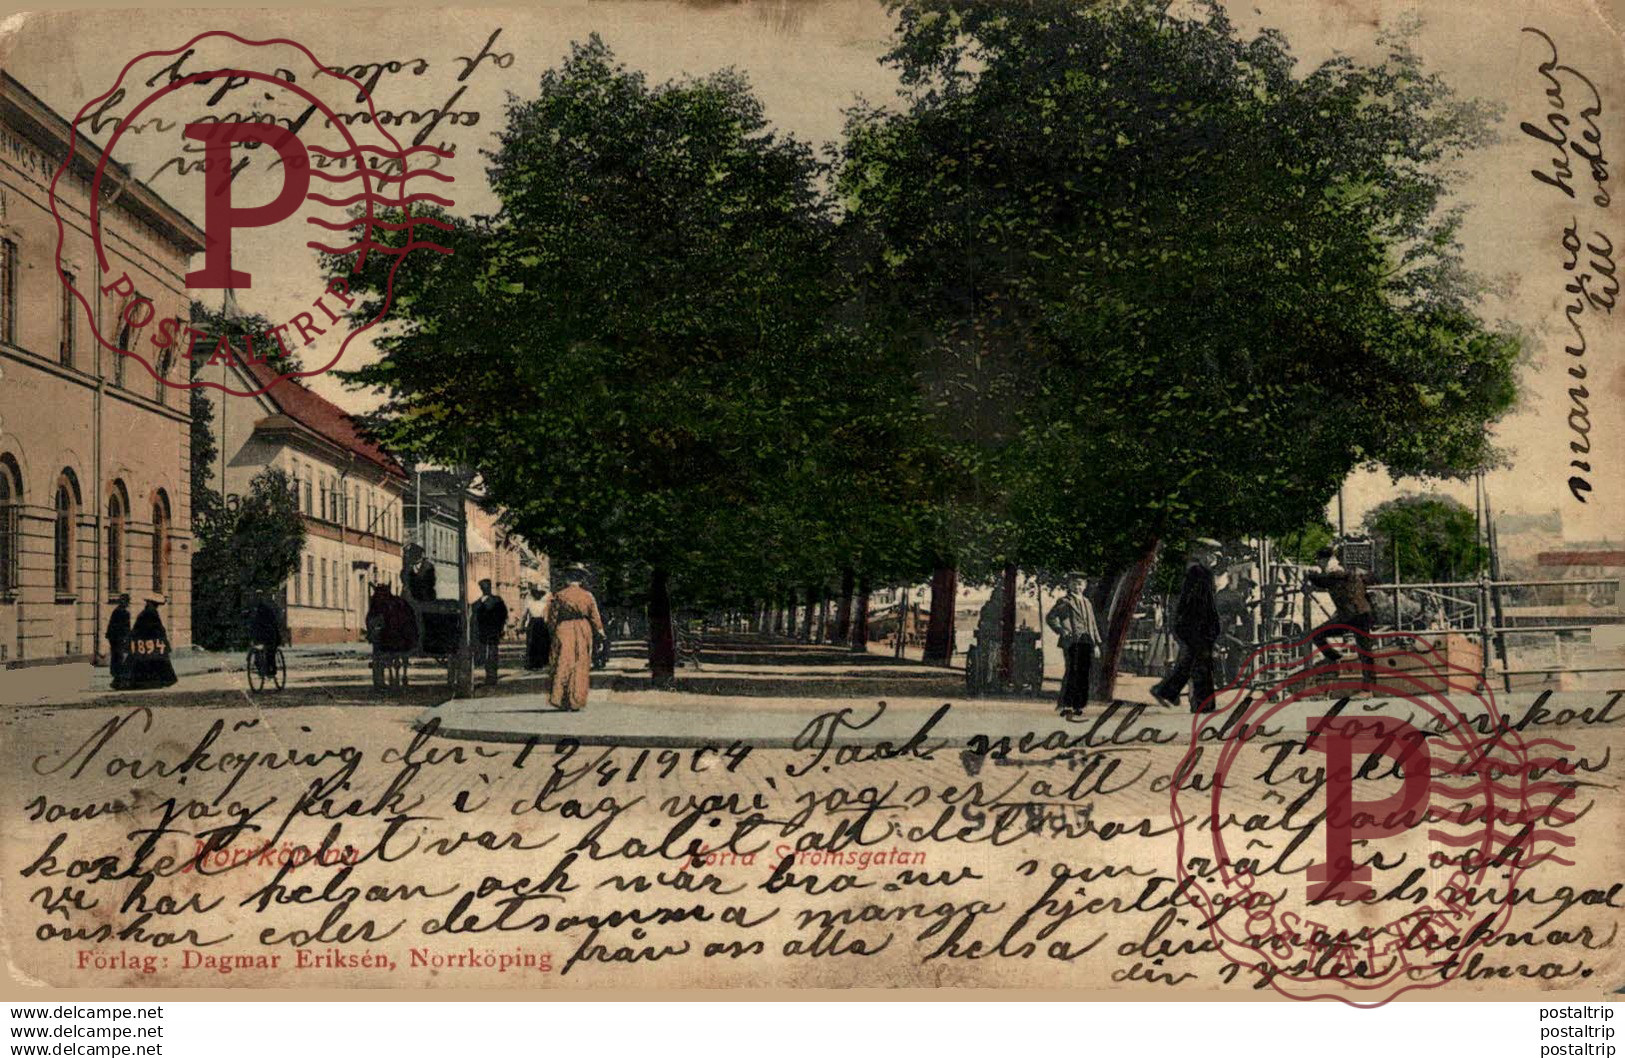 af eder i dag
äfven fått väg
Erna har
mamma helsar
till eder
RINGS AN
1894
Norrköping den 12/4 1904 Tack snälla du för vykort
som jag fick i dag vari jag ser att du tyckte om
kortet det var roligt att det var välkommet
vi har helsan och mår bra nu som väl är och
önskar eder detsamma många hjertliga helsningar
från oss alla helsa din man tecknar
din syster Alma.
Norrköping
Norra Strömsgatan
Förlag: Dagmar Eriksén, Norrköping
POSTALTRIP
POSTALTRIP
www.delcampe.net
www.delcampe.net
www.delcampe.net
postaltrip
postaltrip
postaltrip